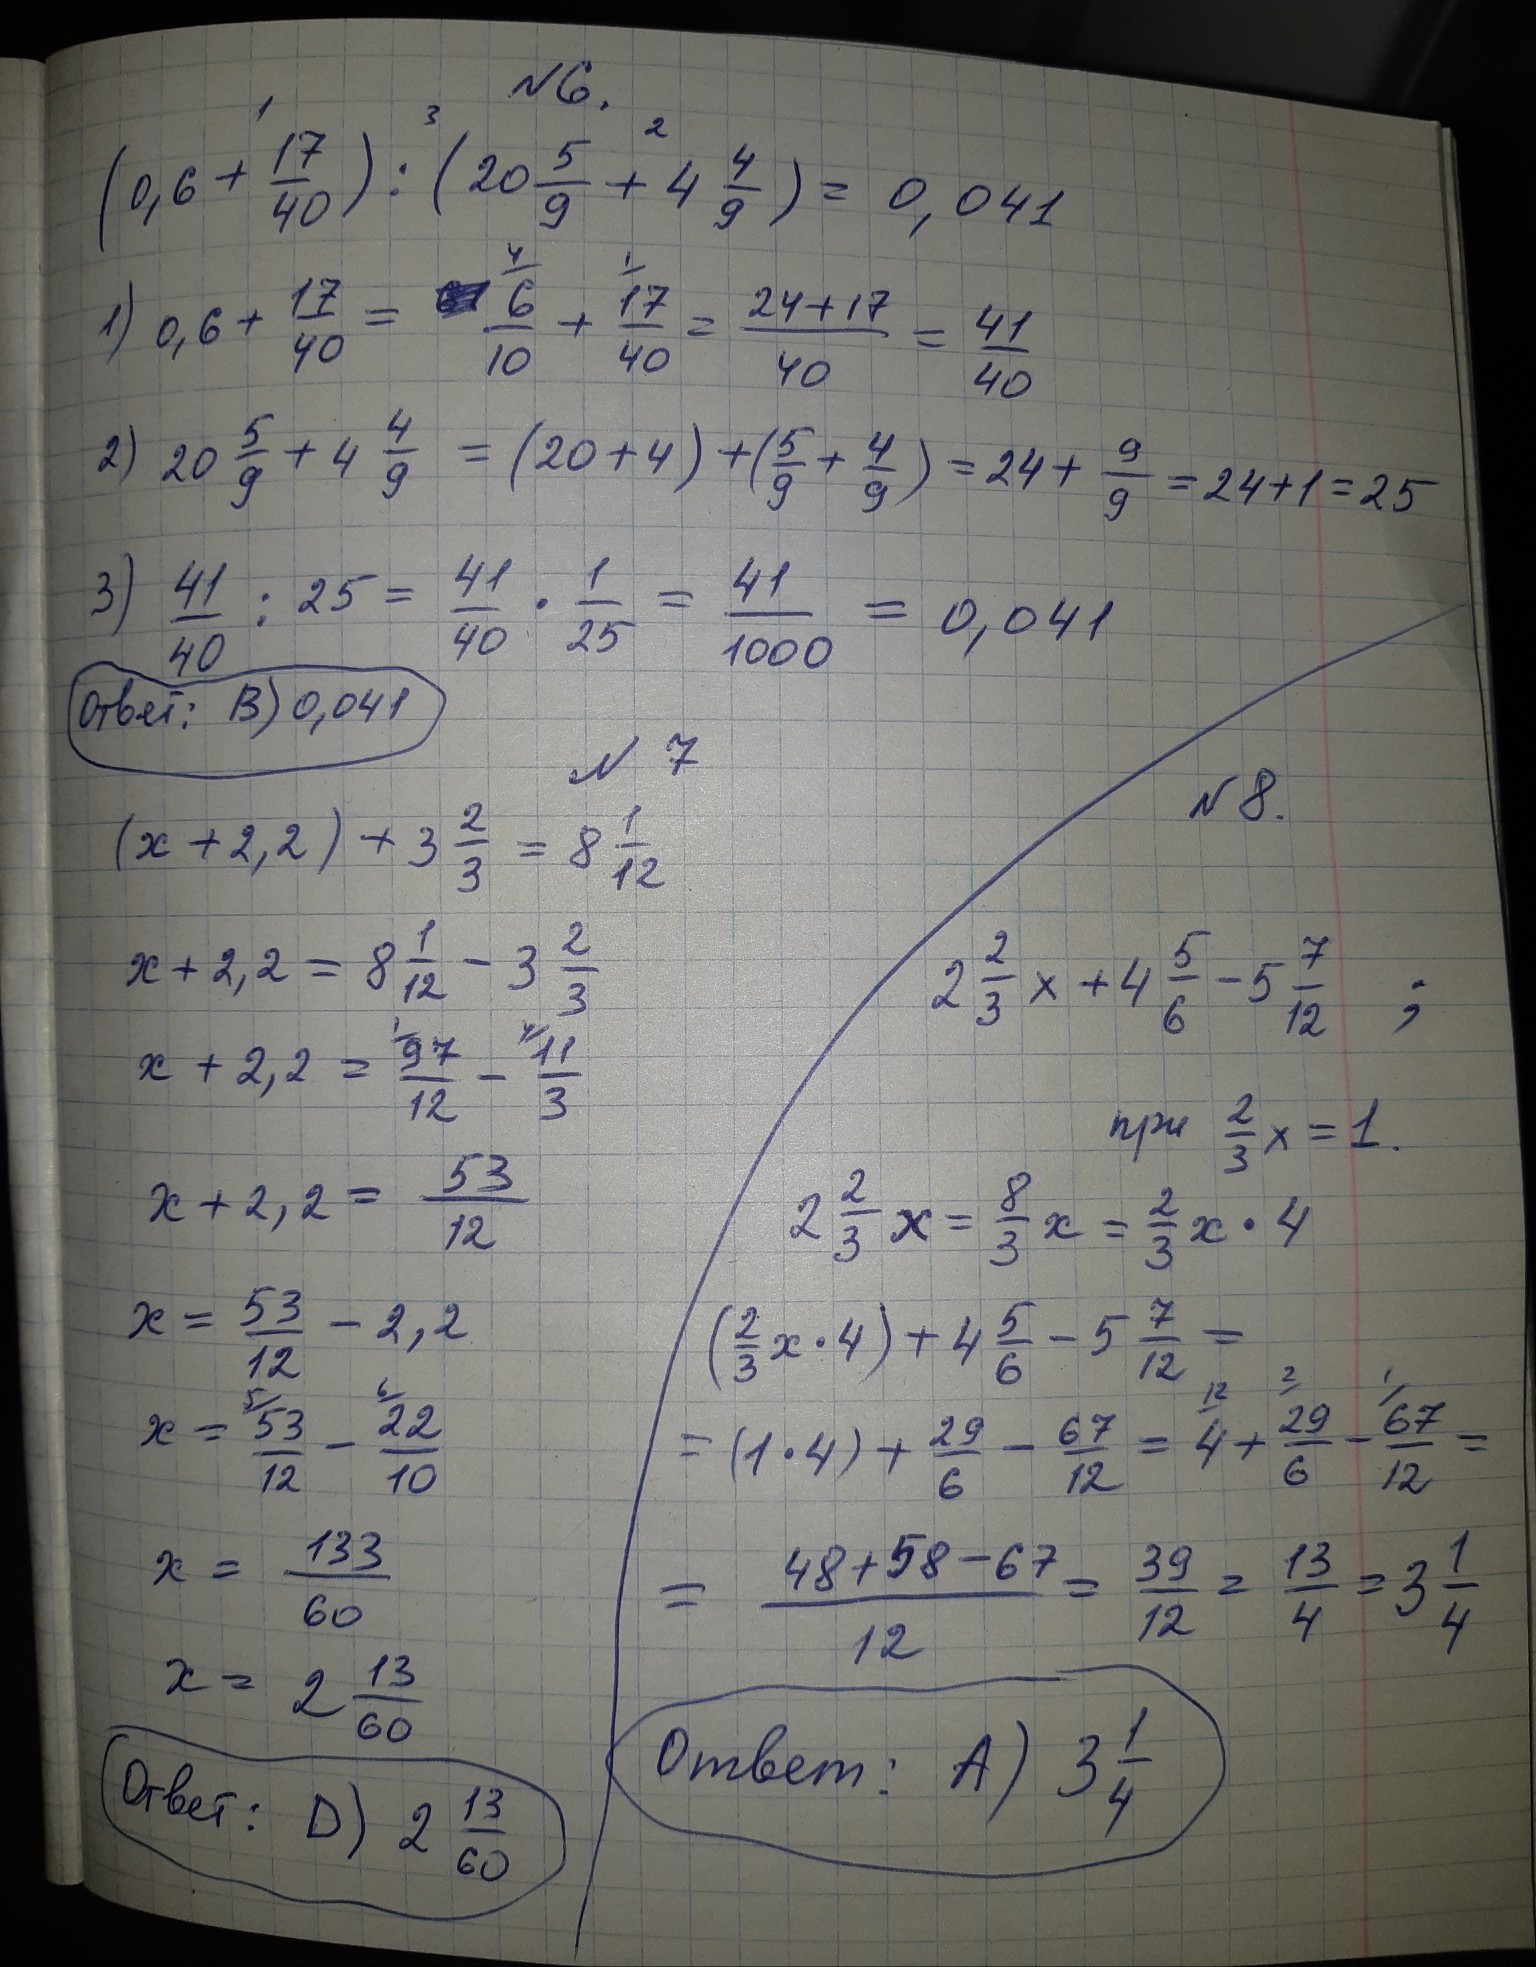 №6.
(0,6 + 17/40) : (20 5/9 + 4 4/9) = 0,041
1) 0,6 + 17/40 = 6/10 + 17/40 = (24+17)/40 = 41/40
2) 20 5/9 + 4 4/9 = (20+4) + (5/9 + 4/9) = 24 + 9/9 = 24+1 = 25
3) 41/40 : 25 = 41/40 · 1/25 = 41/1000 = 0,041
Ответ: B) 0,041
№ 7
(x + 2,2) + 3 2/3 = 8 1/12
x + 2,2 = 8 1/12 − 3 2/3
x + 2,2 = 97/12 − 11/3
x + 2,2 = 53/12
x = 53/12 − 2,2
x = 53/12 − 22/10
x = 133/60
x = 2 13/60
Ответ: D) 2 13/60
№8.
2 2/3 x + 4 5/6 − 5 7/12 ;
при 2/3 x = 1.
2 2/3 x = 8/3 x = 2/3 x · 4
(2/3 x · 4) + 4 5/6 − 5 7/12 =
= (1·4) + 29/6 − 67/12 = 4 + 29/6 − 67/12 =
= (48+58−67)/12 = 39/12 = 13/4 = 3 1/4
Ответ: A) 3 1/4